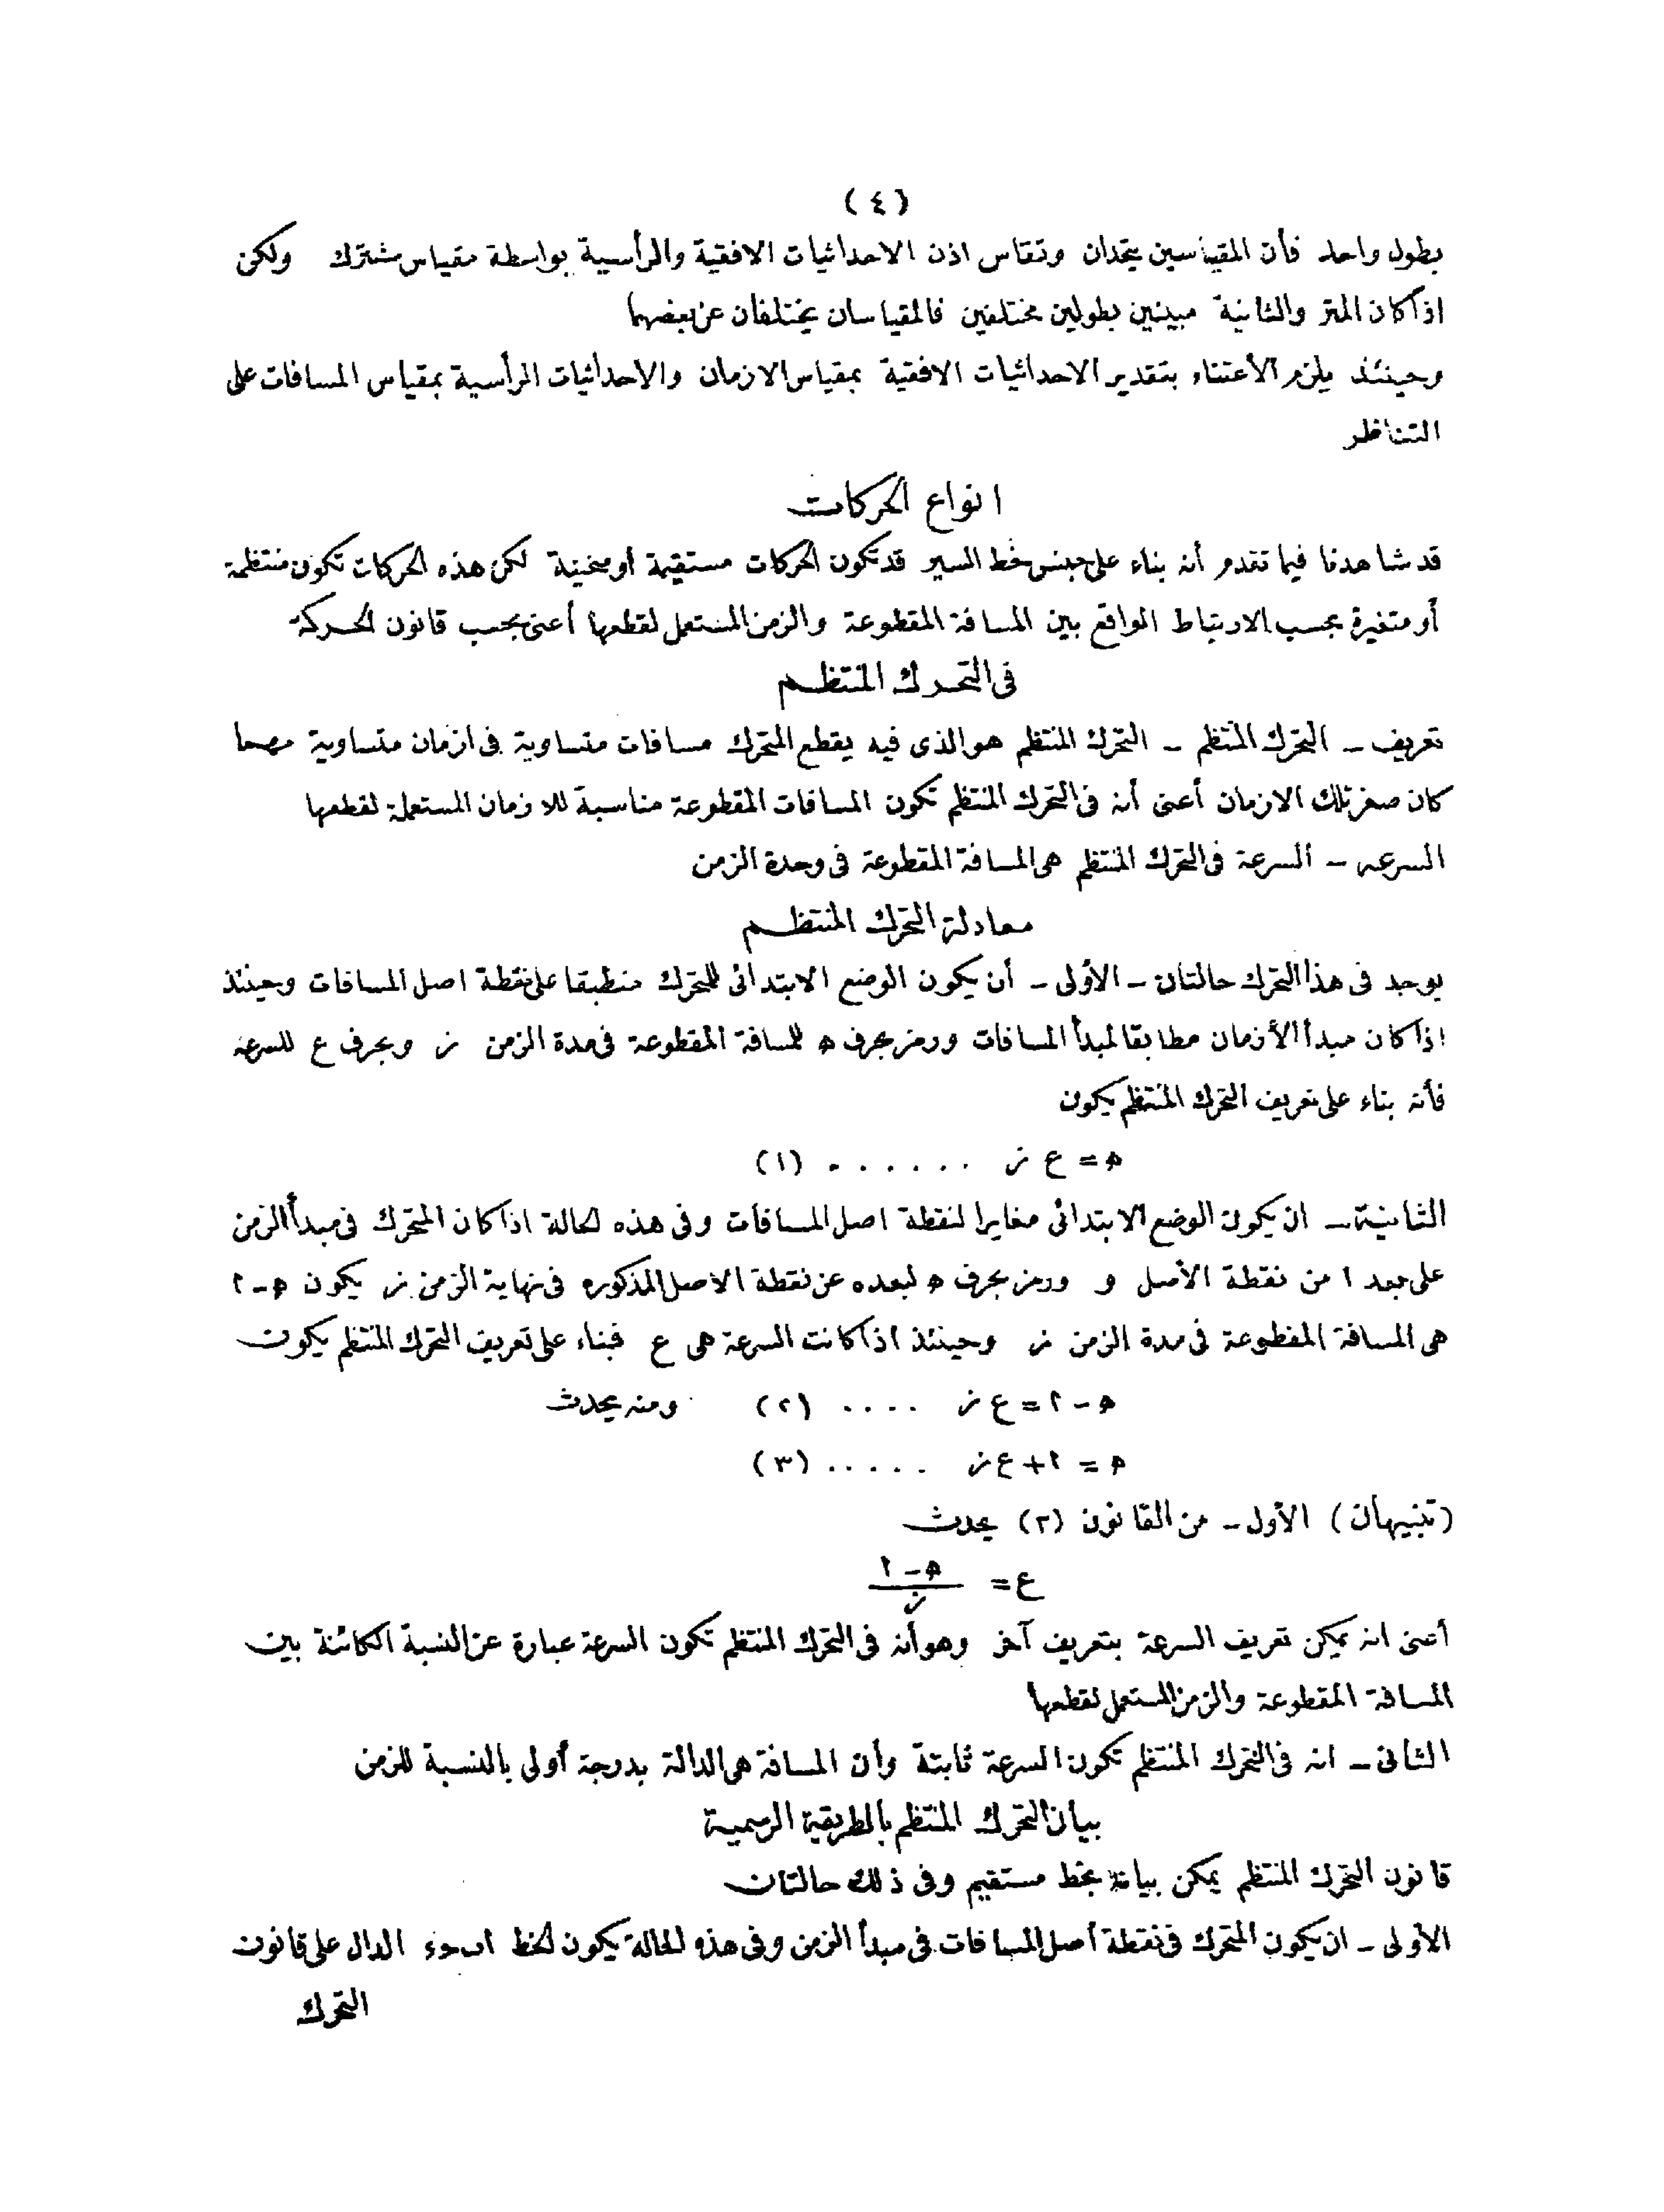 (٤)
بطول واحد فأن المقياسين يتحدان وتقاس اذن الاحداثيات الافقية والرأسية بواسطة مقياس مشترك ولكن
اذا كان المتر والثانية مبينين بطولين مختلفين فالمقياسان يختلفان عن بعضهما
وحينئذ يلزم الأعتناء بتقدير الاحداثيات الافقية بمقياس الازمان والاحداثيات الرأسية بمقياس المسافات على
التناظر
انواع الحركات
قد شاهدنا فيما تقدم أنه بناء على جنس خط السير قد تكون الحركات مستقيمة أو منحنية لكن هذه الحركات تكون منتظمة
أو متغيرة بحسب الارتباط الواقع بين المسافة المقطوعة والزمن المستعمل لقطعها أعنى بحسب قانون الحركة
فى التحرك المنتظم
تعريف – التحرك المنتظم – التحرك المنتظم هو الذى فيه يقطع المتحرك مسافات متساوية فى ازمان متساوية مهما
كان صغر تلك الازمان أعنى أنه فى التحرك المنتظم تكون المسافات المقطوعة مناسبة للازمان المستعملة لقطعها
السرعه – السرعة فى التحرك المنتظم هى المسافة المقطوعة فى وحدة الزمن
معادلة التحرك المنتظم
يوجد فى هذا التحرك حالتان – الأولى – أن يكون الوضع الابتدائى للمتحرك منطبقا على نقطة اصل المسافات وحينئذ
اذا كان مبدأ الأزمان مطابقا لمبدأ المسافات ورمز بحرف ﻫ للمسافة المقطوعة فى مدة الزمن ز وبحرف ع للسرعة
فأنه بناء على تعريف التحرك المنتظم يكون
ﻫ = ع ز . . . . . . . (١)
الثانية – ان يكون الوضع الابتدائى مغايرا لنقطة اصل المسافات وفى هذه الحالة اذا كان المتحرك فى مبدأ الزمن
على بعد ا من نقطة الأصل و ورمز بحرف ﻫ لبعده عن نقطة الاصل المذكوره فى نهاية الزمن ز يكون ﻫ – ا
هى المسافة المقطوعة فى مدة الزمن ز وحينئذ اذا كانت السرعة هى ع فبناء على تعريف التحرك المنتظم يكون
ﻫ – ا = ع ز . . . . (٢) ومنه يحدث
ﻫ = ا + ع ز . . . . . (٣)
(تنبيهان) الأول – من القانون (٢) يحدث
ع = (ﻫ – ا) / ز
أعنى انه يمكن تعريف السرعة بتعريف آخر وهو أنه فى التحرك المنتظم تكون السرعة عبارة عن النسبة الكائنة بين
المسافة المقطوعة والزمن المستعمل لقطعها
الثانى – انه فى التحرك المنتظم تكون السرعة ثابتة وأن المسافة هى الدالة بدرجة أولى بالنسبة للزمن
بيان التحرك المنتظم بالطريقة الرسمية
قانون التحرك المنتظم يمكن بيانه بخط مستقيم وفى ذلك حالتان
الأولى – ان يكون المتحرك فى نقطة أصل المسافات فى مبدأ الزمن وفى هذه الحالة يكون الخط الدال على قانون
التحرك